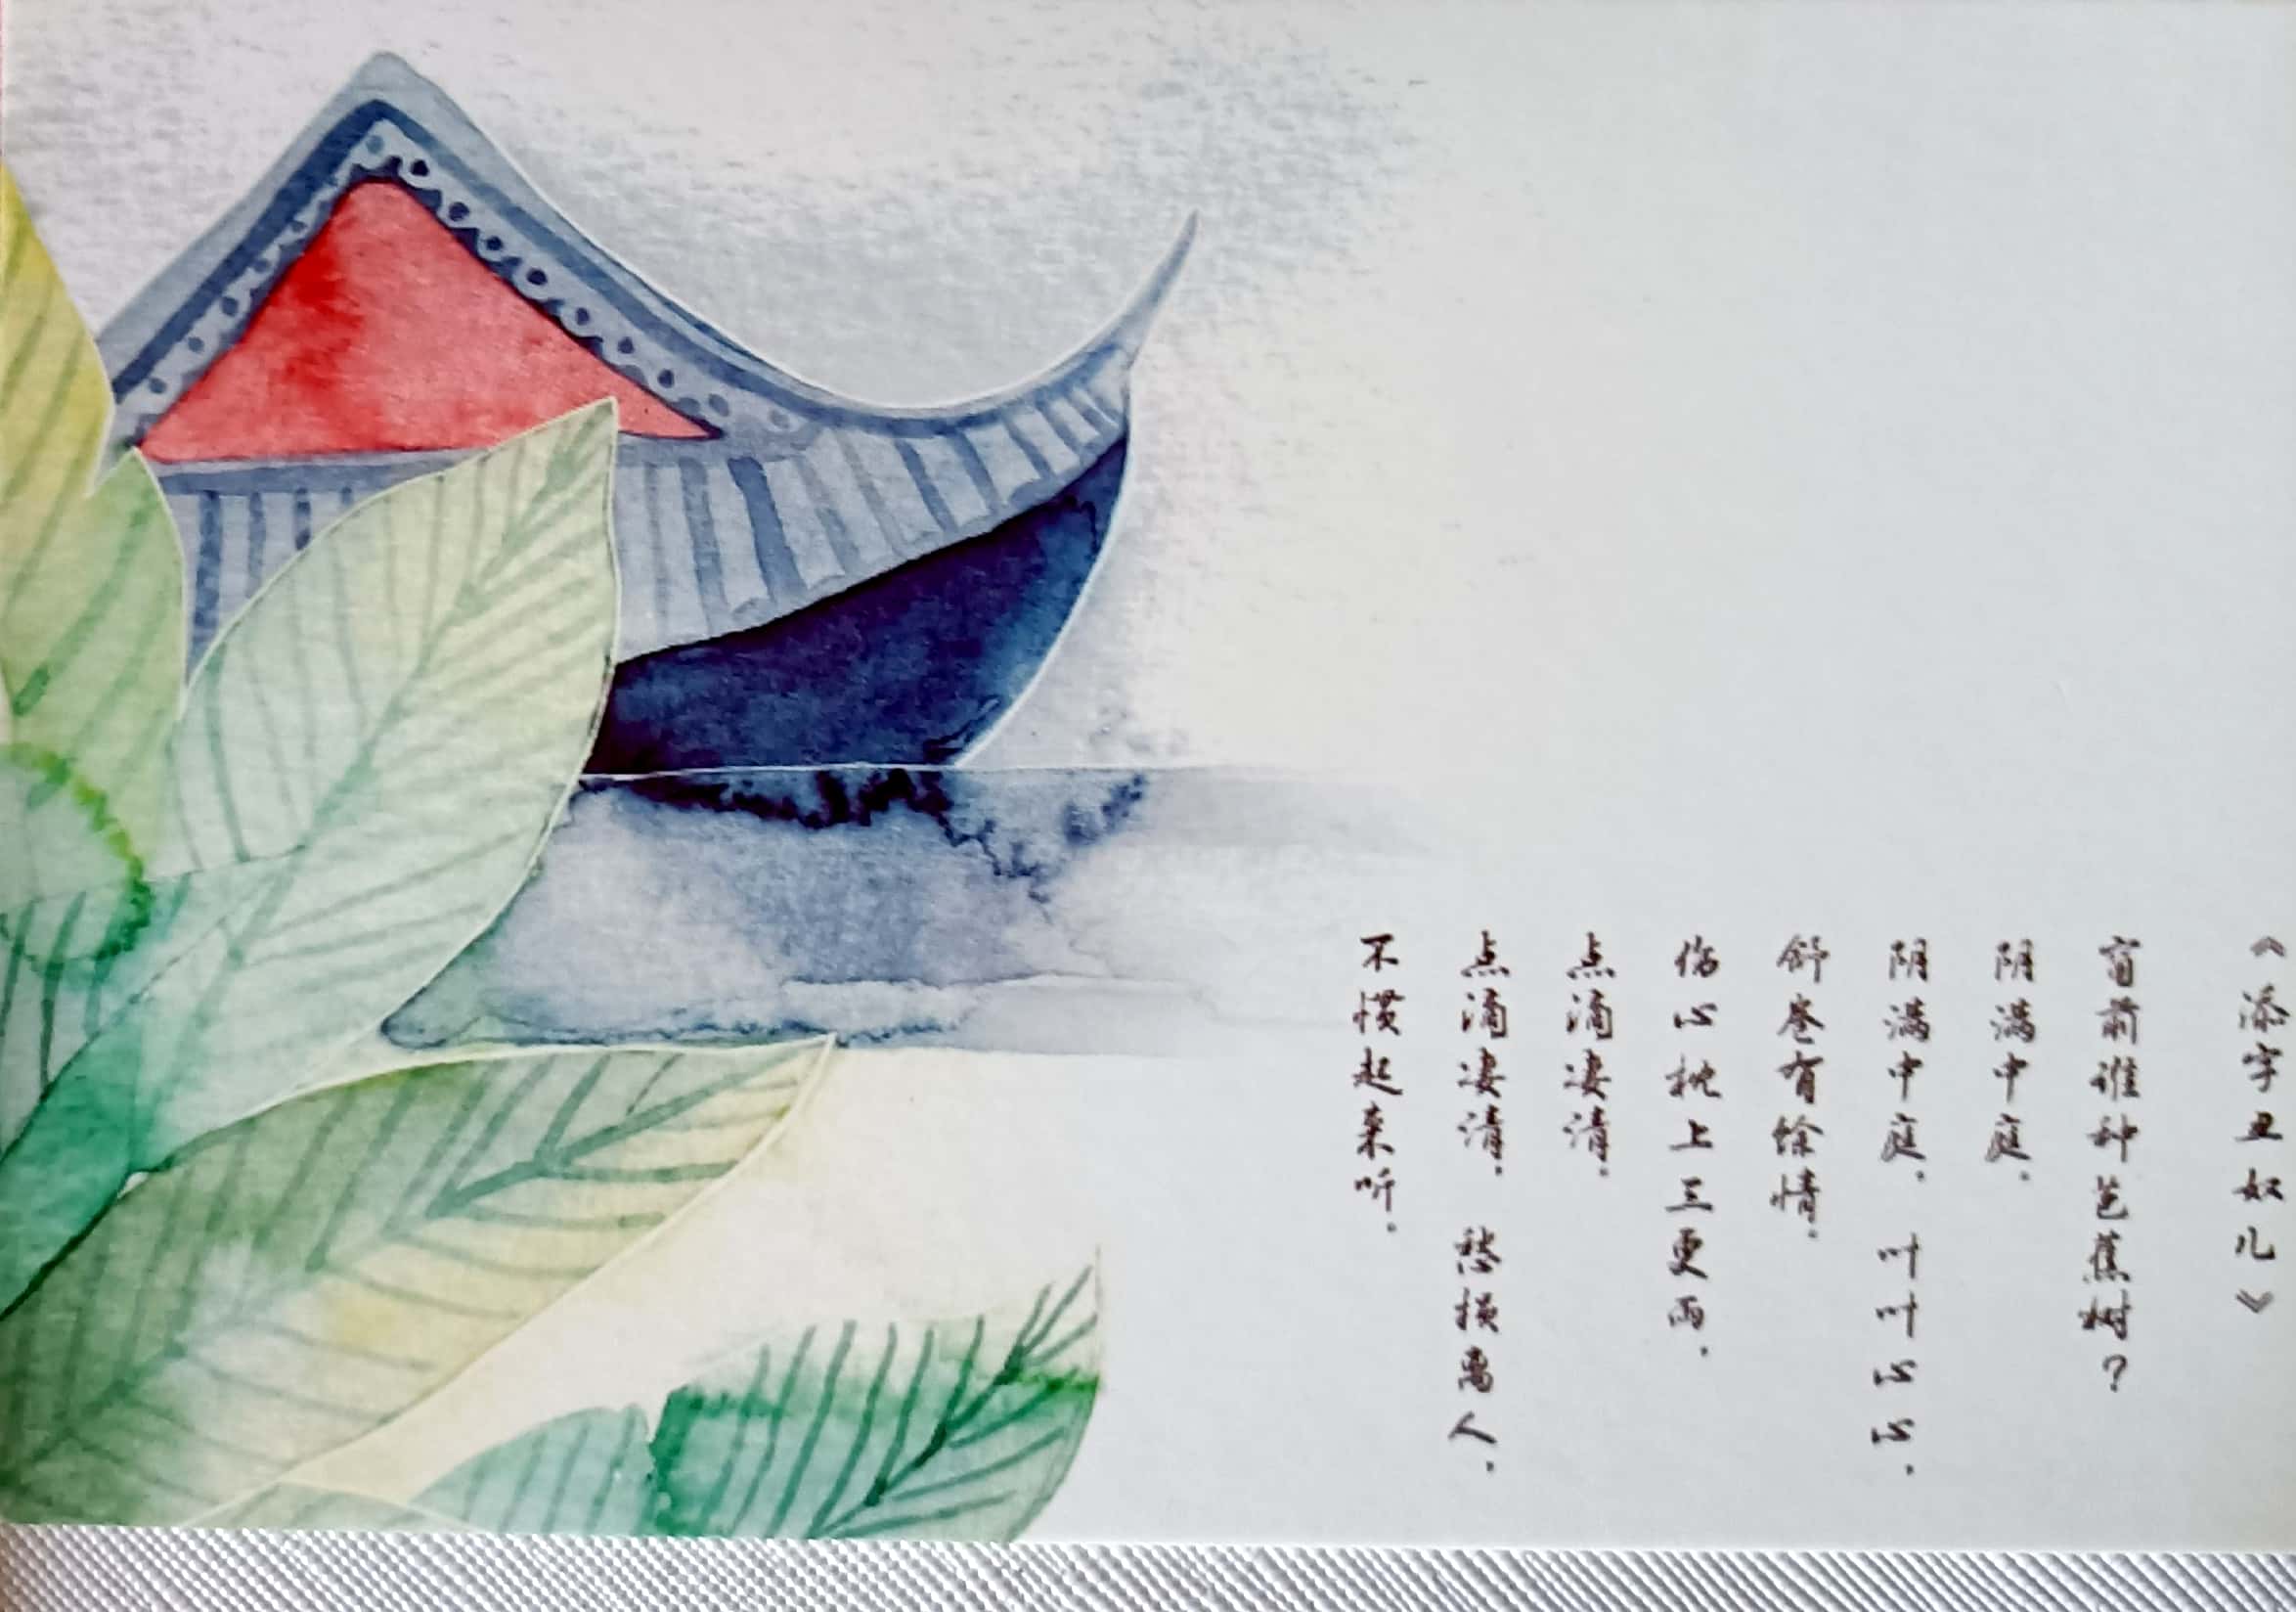 《添字丑奴儿》
窗前谁种芭蕉树？
阴满中庭，
阴满中庭，叶叶心心，
舒卷有馀情。
伤心枕上三更雨，
点滴凄清，
点滴凄清，愁损离人，
不惯起来听。